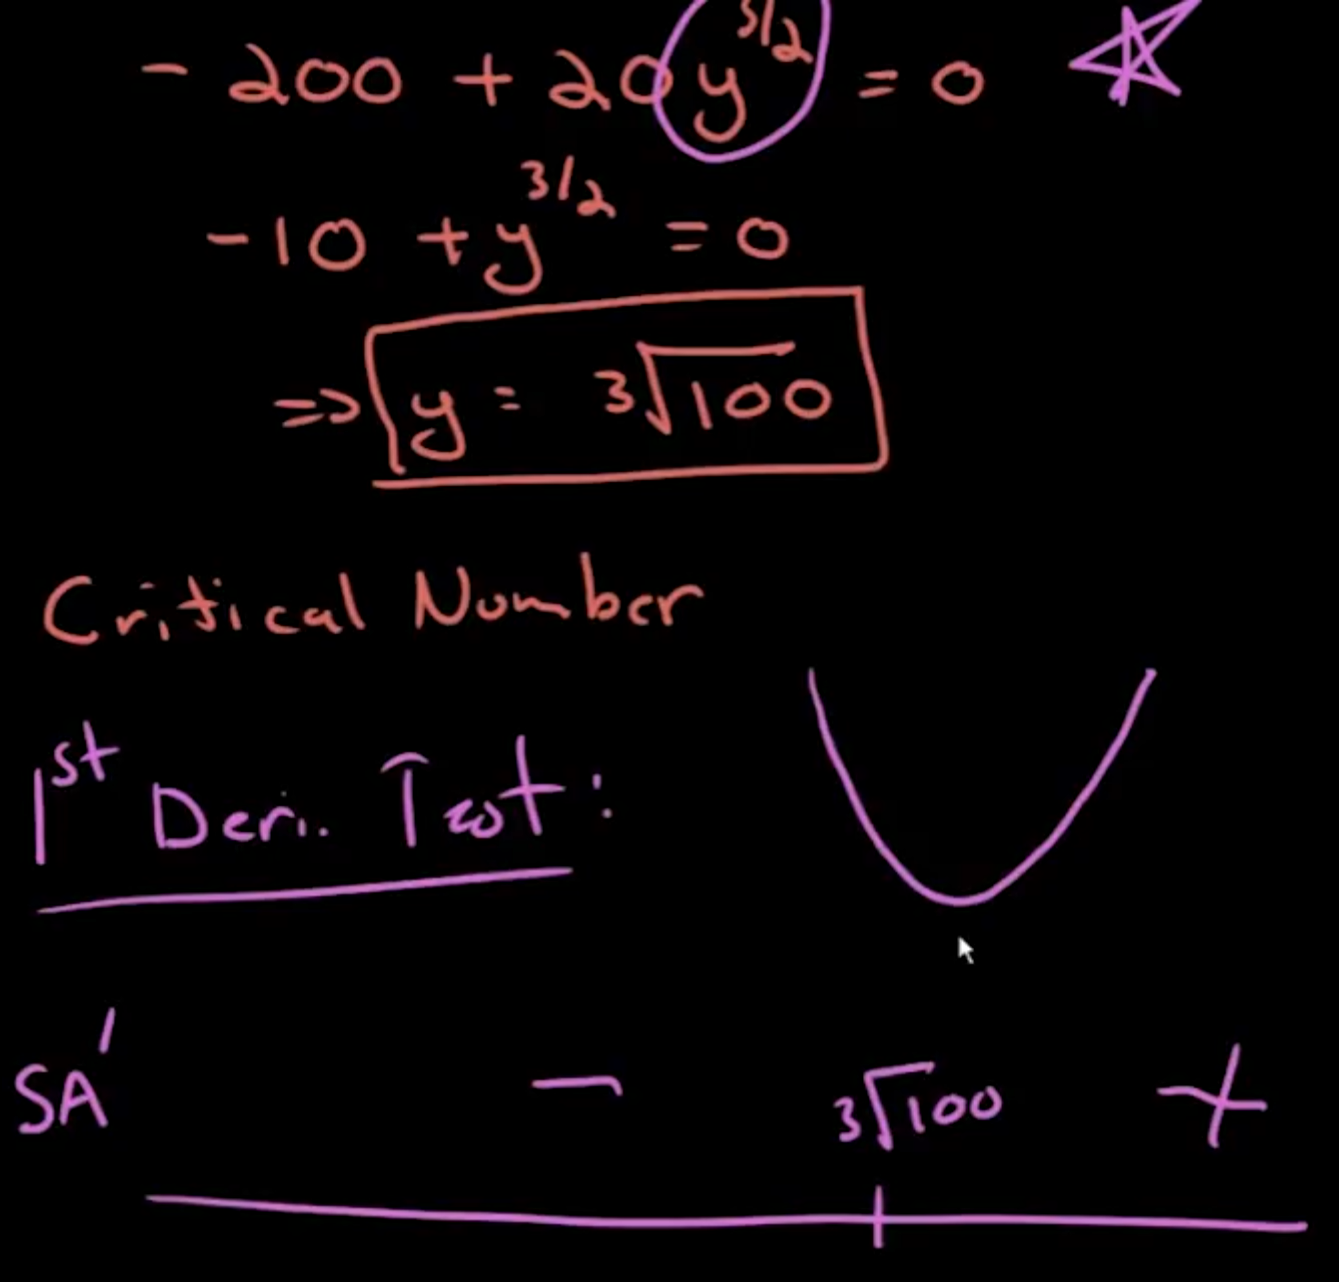 - 200 + 20y^{3/2} = 0
-10 + y^{3/2} = 0
=> y = ∛100
Critical Number
1st Deri. Test:
SA' - ∛100 +